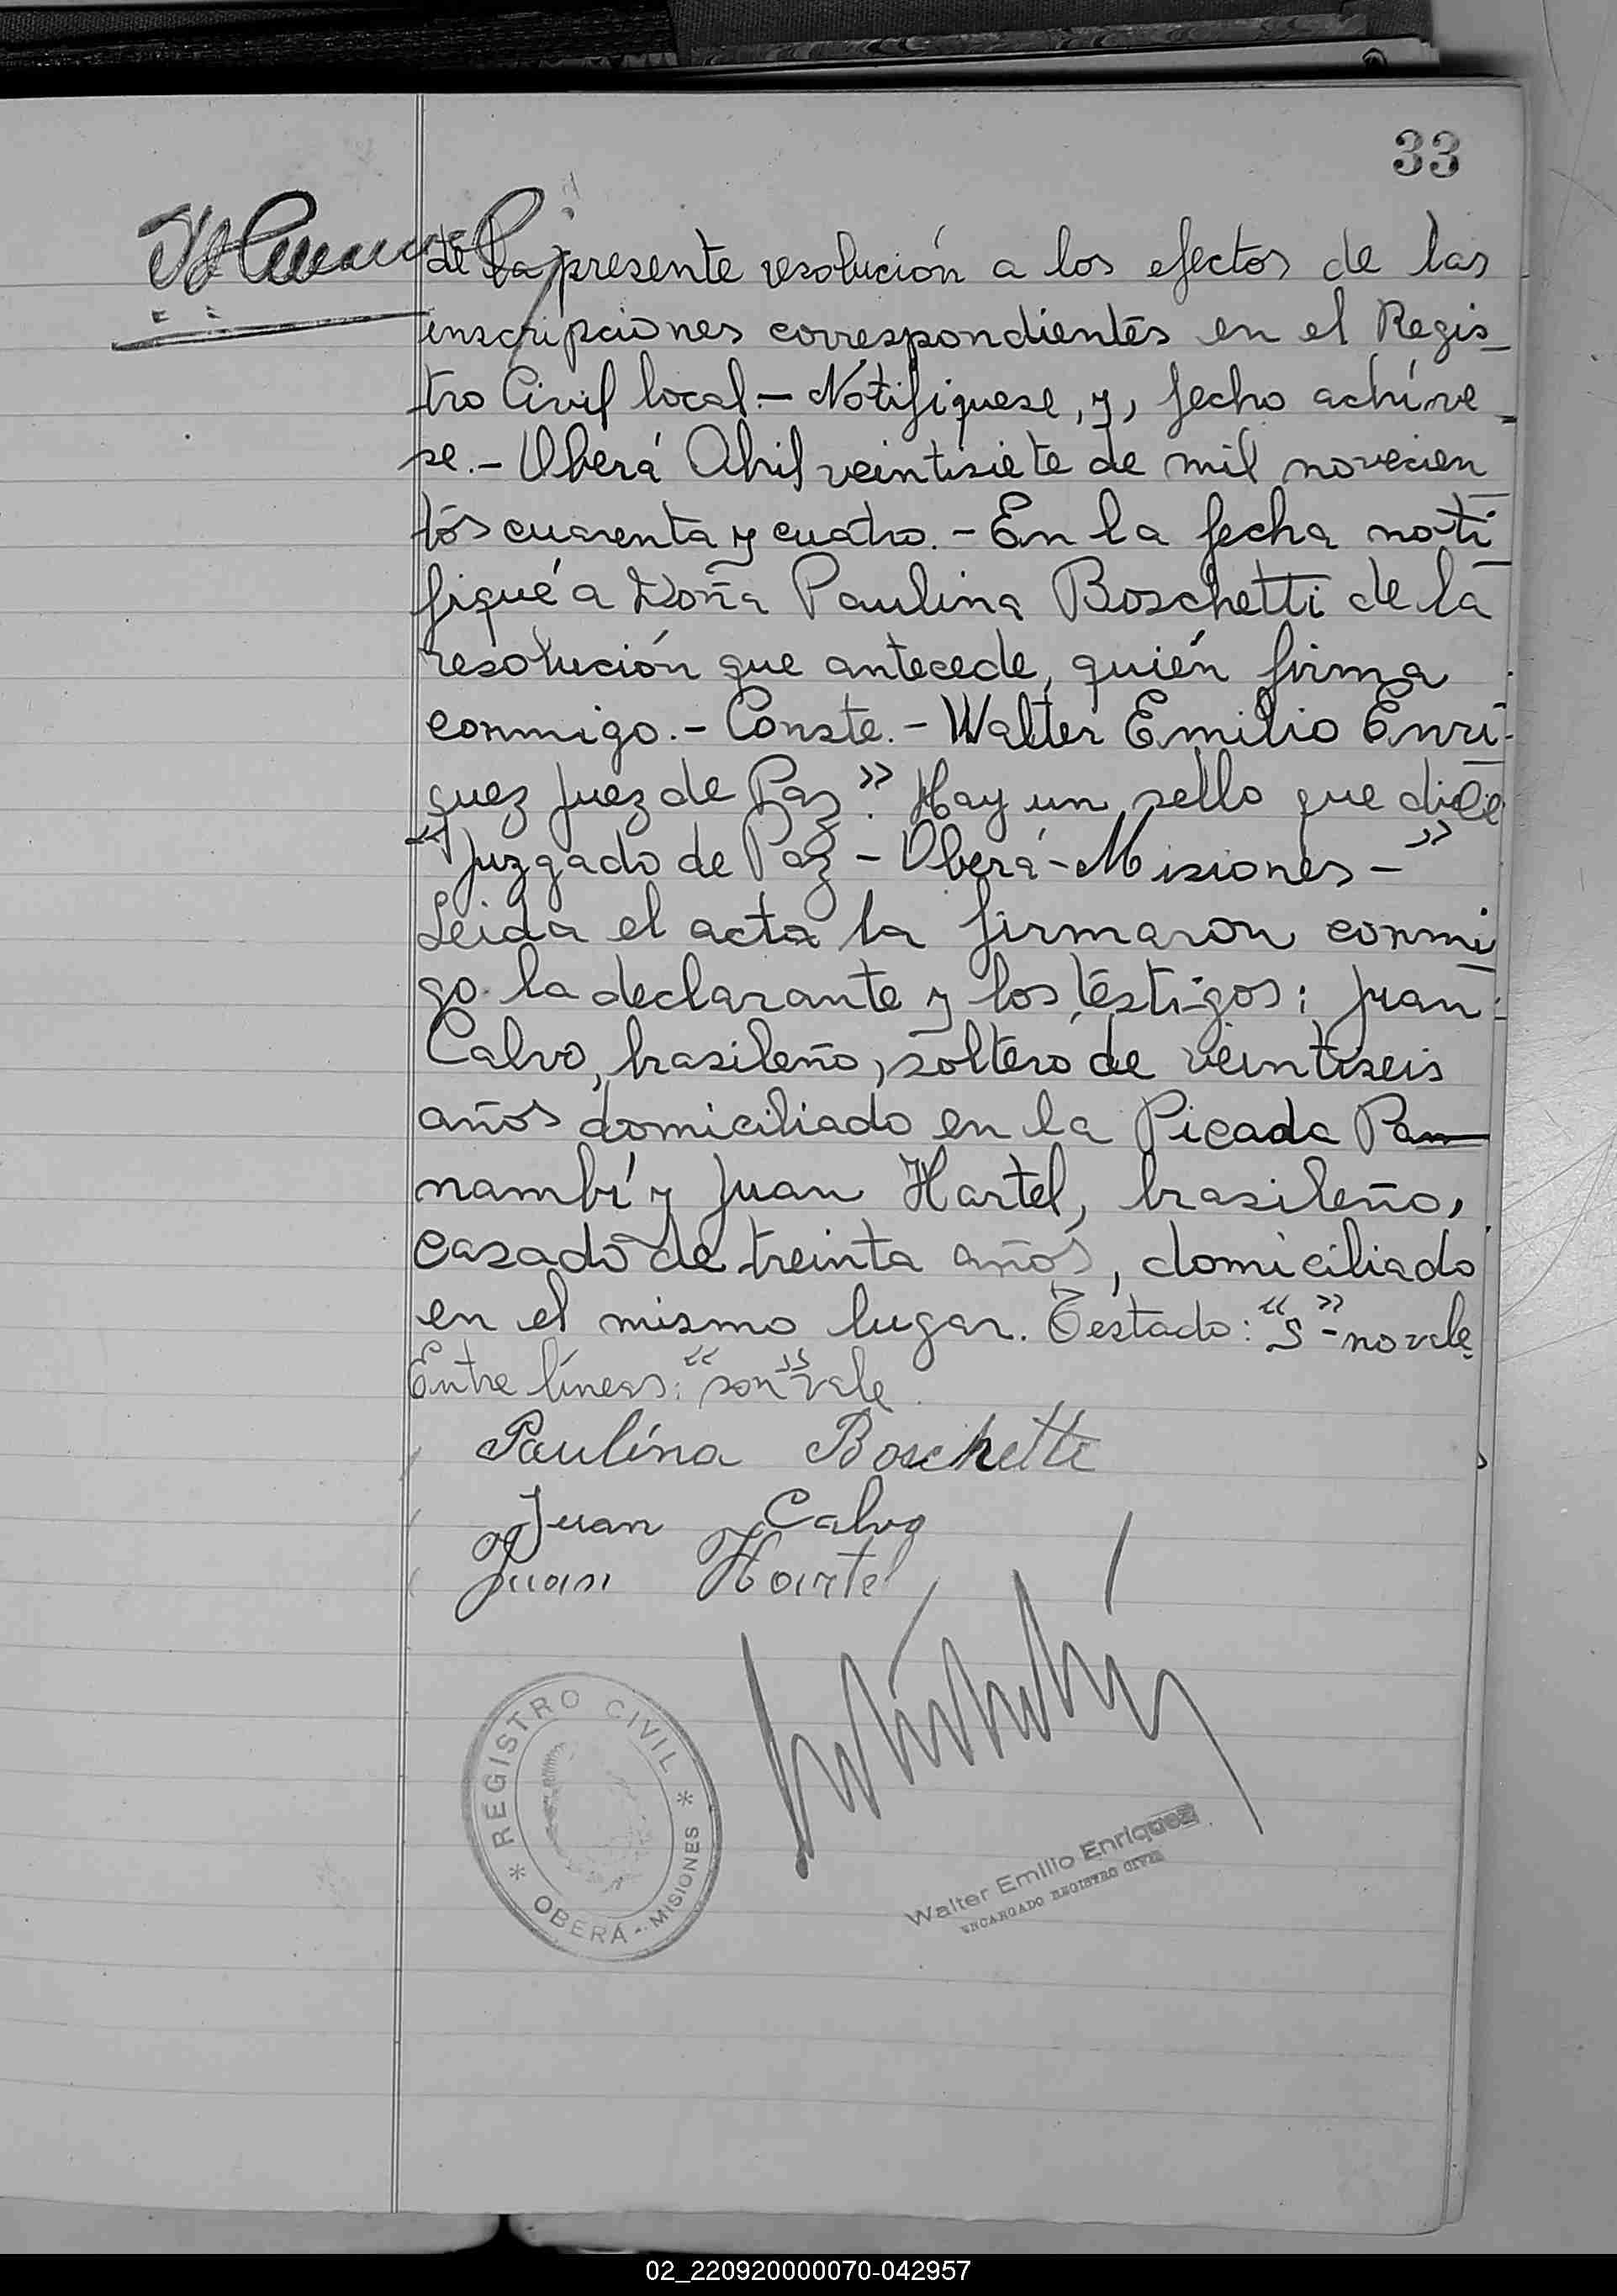 33
de la presente resolución a los efectos de las
inscripciones correspondientes en el Regis_
tro Civil local.- Notifiquese, y, fecho achíve_
se.- Oberá Abril veintisiete de mil novecien_
tos cuarenta y cuatro.- En la fecha noti_
fiqué a Doña Paulina Boschetti de la
resolución que antecede, quién firma
conmigo.- Conste.- Walter Emilio Enrí_
quez Juez de Paz". Hay un sello que dice
"Juzgado de Paz - Oberá - Misiones -"
Leida el acta la firmaron conmi_
go la declarante y los testigos: Juan
Calvo, brasileño, soltero de veintiseis
años domiciliado en la Picada Pa
nambí y Juan Hartel, brasileño,
casado de treinta años, domiciliado
en el mismo lugar. Testado: "s"-no vale.
Entre líneas: "son" vale.
Paulina Boschetti
Juan Calvo
Juan Hartel
* REGISTRO CIVIL *
OBERÁ - MISIONES
Walter Emilio Enriquez
ENCARGADO REGISTRO CIVIL
02_220920000070-042957